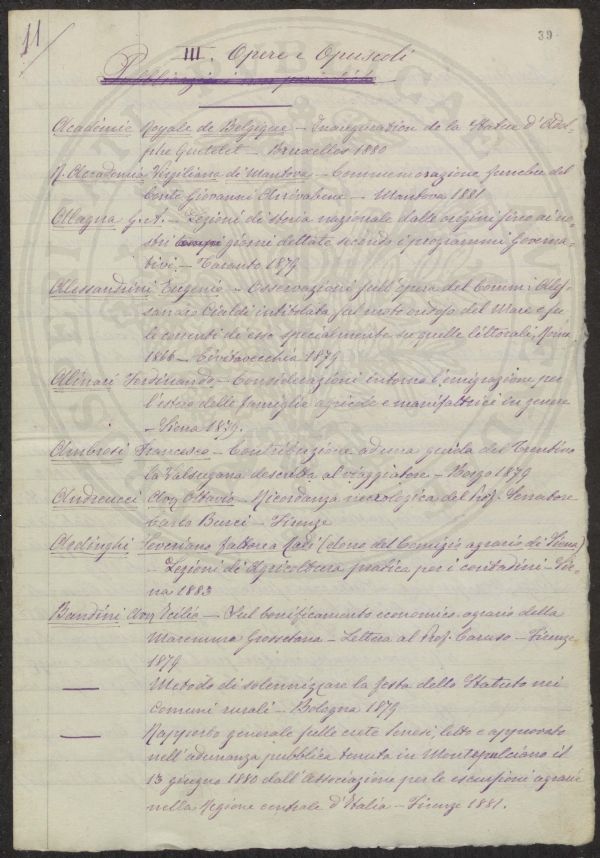 11
39
III. Opere e Opuscoli
Académie Royale de Belgique – Inauguration de la Statue d'Adol-
phe Quetelet – Bruxelles 1880
R. Accademia Virgiliana di Mantova – Commemorazione funebre del
Conte Giovanni Arrivabene – Mantova 1881
Allagna G. A. – Lezioni di storia nazionale dalle origini fino ai no-
stri tempi giorni dettate secondo i programmi Governa-
tivi – Taranto 1879
Alessandrini Eugenio – Osservazioni sull'opera del Comm: Ales-
sandro Cialdi intitolata, sul moto ondoso del Mare e su
le correnti di esso specialmente su quelle littorali, Roma
1866 – Civitavecchia 1879
Allinari Ferdinando – Considerazioni intorno l'emigrazione per
l'estero delle famiglie agricole e manifattrici in genere
– Siena 1879.
Ambrosi Francesco – Contribuzione ad una guida del Trentino
la Valsugana descritta al viaggiatore – Borgo 1879
Andreucci Avv Ottavio – Ricordanza necrologica del Prof. Senatore
Carlo Burci – Firenze
Ardinghi Severiano fattore a Radi (dono del Comizio agrario di Siena)
– Lezioni di Agricoltura pratica per i contadini – Sie-
na 1883
Bandini Avv Icilio – Sul bonificamento economico agrario della
Maremma Grossetana – Lettera al Prof. Caruso – Firenze
1879
— Metodo di solennizzare la festa dello Statuto nei
Comuni rurali – Bologna 1879
— Rapporto generale sulle crete Senesi, letto e approvato
nell'adunanza pubblica tenuta in Montepulciano il
13 giugno 1880 dall'Associazione per le escursioni agrarie
nella Regione centrale d'Italia – Firenze 1881.